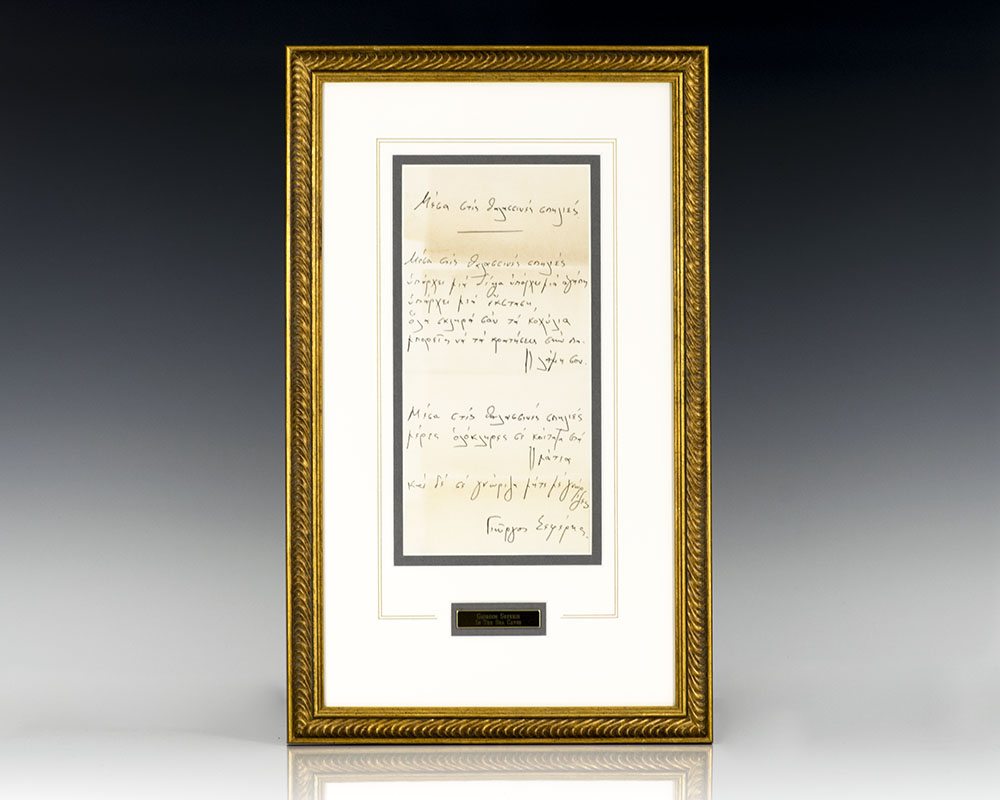 Μέσα στις θαλασσινές σπηλιές
Μέσα στις θαλασσινές σπηλιές
ὑπάρχει μιά δίψα ὑπάρχει μιά ἀγάπη
ὑπάρχει μιά ἔκσταση,
ὅλα σκληρά σάν τά κοχύλια
μπορεῖς νά τά κρατήσεις στήν πα-
λάμη σου.
Μέσα στίς θαλασσινές σπηλιές
μέρες ὁλόκληρες σέ κοίταζα στά
μάτια
καί δέ σέ γνώριζα μήτε μέ γνώρ-
ιζες
Γιῶργος Σεφέρης.
GEORGIOS SEFERIS
IN THE SEA CAVES